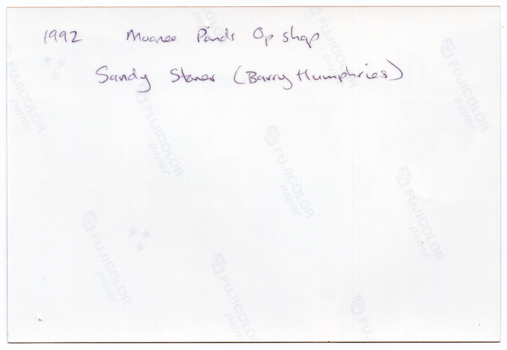 1992 Moonee Ponds Op shop
Sandy Stones (Barry Humphries)
FUJICOLOR
paper
FUJICOLOR
paper
FUJICOLOR
paper
FUJICOLOR
paper
FUJICOLOR
paper
FUJICOLOR
paper
FUJICOLOR
FUJICOLOR